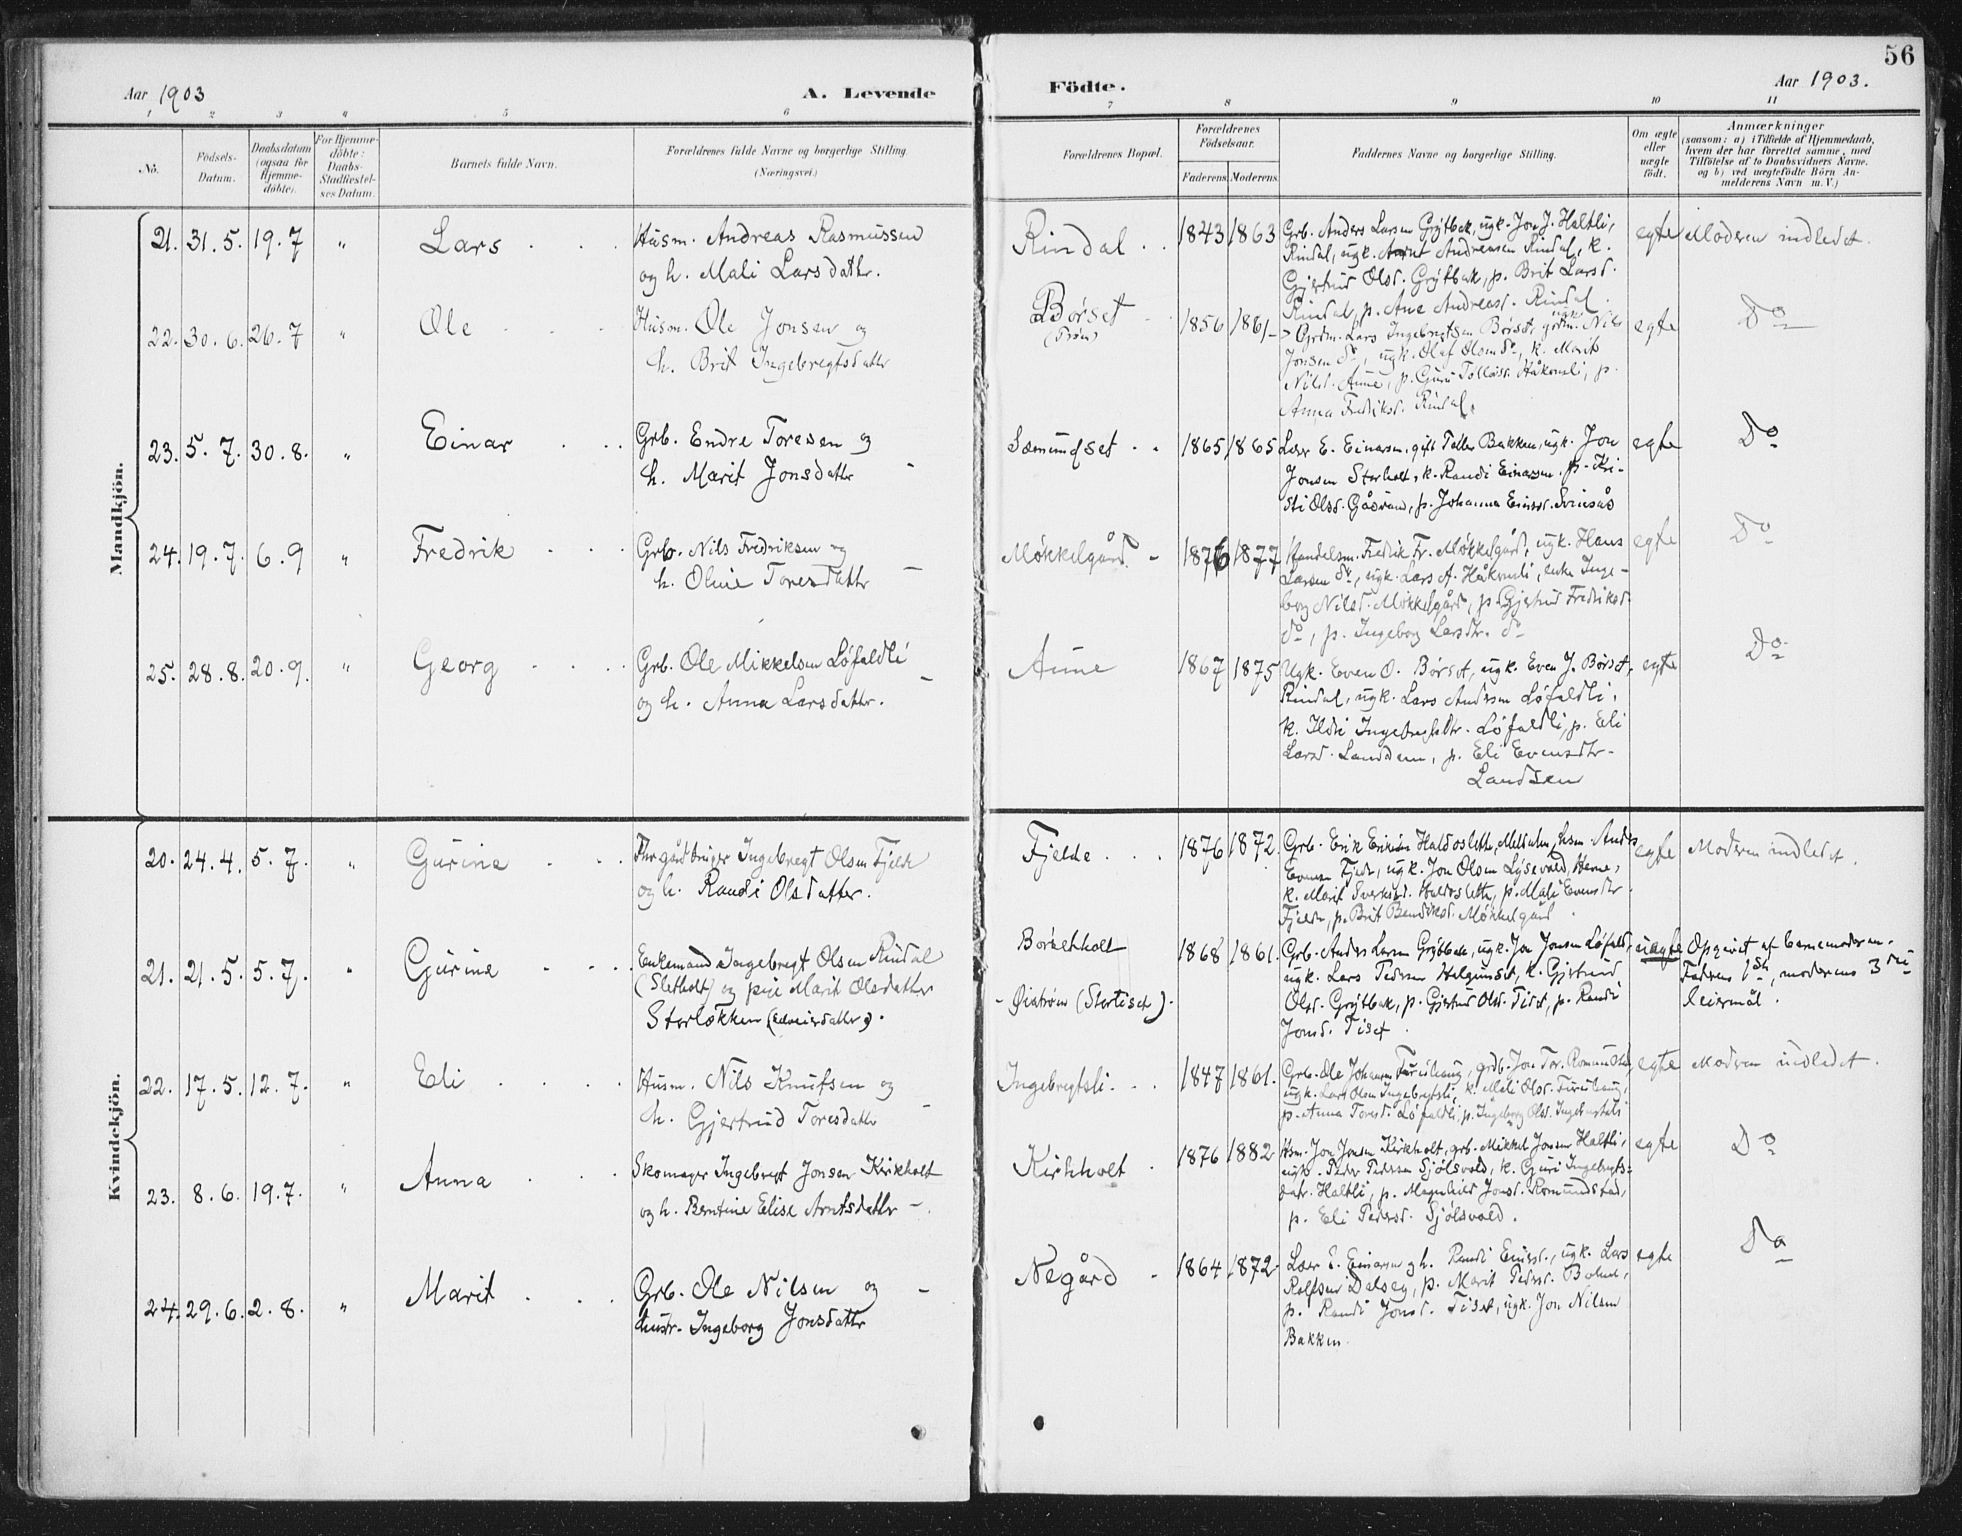 56
Aar 1903
A. Levende
Födte.
Aar 1903.
1 2 3 4 5 6 7 8 9 10 11
No.
Födsels-
Datum.
Daabsdatum
(ogsaa for
Hjemme-
döbte).
For Hjemme-
döbte:
Daabs-
Stadfæstel-
ses Datum.
Barnets fulde Navn.
Forældrenes fulde Navne og borgerlige Stilling.
(Næringsvei.)
Forældrenes Bopæl.
Forældrenes
Födselsaar.
Faderens. Moderens.
Faddernes Navne og borgerlige Stilling.
Om ægte
eller
uægte
födt.
Anmærkninger
(saasom: a) i Tilfælde af Hjemmedaab,
hvem der har forrettet samme, med
Tilföielse af to Daabsvidners Navne.
og b) ved uægtefödte Börn An-
melderens Navn m. V.)
Mandkjön.
21. 31. 5. 19. 7 " Lars
Husm. Andreas Rasmussen
og h. Mali Larsdattr.
Rindal
1843 1863
Grb. Anders Larsen Grytbak, ugk. Jon J. Haltli,
Rindal, ugk. Arnt Andreasen Rindal, k.
Gjertrud Olsd. Grytbak, p. Brit Larsd.
Rindal, p. Ane Andreasd. Rindal.
egte
Moderen indledet.
22. 30. 6. 26. 7 " Ole
Husm. Ole Jonsen og
h. Brit Ingebregtsdattr
Børset
(Trøen)
1856 1861
Grdm. Lars Ingebregtsen Børset, grdm. Nils
Jonsen do, ugk. Olaf Olsen do, k. Marit
Nilsd. Aune, p. Guri Tollevsd. Håkonsli, p.
Anna Fredriksd. Rindal.
egte
Do
23. 5. 7. 30. 8. " Einar
Grb. Endre Toresen og
h. Marit Jonsdattr
Sæmundset
1865 1865
Lærer E. Einarsen, gift Toller Bakken, ugk. Jon
Jonsen Storholt, k. Randi Einarsen, p. Kri-
sti Olsd. Gåsvand, p. Johanna Einarsd. Svinsås
egte
Do
24. 19. 7. 6. 9 " Fredrik
Grb. Nils Fredriksen og
h. Oline Toresdattr
Møkkelgård
1876 1877
Handelsm. Fredrik Fr. Møkkelgård, ugk. Hans
Larsen do, ugk. Lars A. Håkonsli, enke Inge-
borg Nilsd. Møkkelgård, p. Gjertrud Fredriksd.
do, p. Ingeborg Larsdtr. do
egte
Do
25. 28. 8. 20. 9. " Georg
Grb. Ole Mikkelsen Løfaldli
og h. Anna Larsdattr.
Aune
1867 1875
Ugk. Even O. Børset, ugk. Even J. Børset,
Rindal, ugk. Lars Andersen Løfaldli,
k. Ildri Ingebregtsdtr. Løfaldli, p. Eli
Larsd. Landsem, p. Eli Evensdtr.
Landsem
egte
Do
Kvindekjön.
20. 24. 4. 5. 7. " Gurine
Fhv. gårdbruger Ingebregt Olsen Fjelde
og h. Randi Olsdatter.
Fjelde
1876 1872.
Grb. Erik Eriksen Haldosletta, Meldalen, husm. Anders
Evensen Fjelde, ugk. Jon Olsen Lysevold, Herne,
k. Marit Sverksd. Haldosletta, p. Mali Evensdtr
Fjelde, p. Brit Bendiksd. Møkkelgård.
egte
Moderen indledet.
21. 21. 5. 5. 7. " Gurine
Enkemand Ingebregt Olsen Rindal
(Sletholt) og pige Marit Olsdatter
Storløkken
Børsethholt
- Øiatrøen (Stortiset).
1868 1861.
Grb. Anders Larsen Grytbak, ugk. Jon Jonsen Løfald,
ugk. Lars Pedersen Helgumset, k. Gjertrud
Olsd. Grytbak, p. Gjertrud Olsd. Tiset, p. Randi
Jonsd. Tiset.
uegte
Opgivet af barnemoderen.
Fadrens 1ste, moderens 3die
leiermål.
22. 17. 5. 12. 7. " Eli
Husm. Nils Knutsen og
h. Gjertrud Toresdattr
Ingebregtsli.
1847 1861.
Grb. Ole Johansen Furuhaug, grdb. Jon Tor. Romundstad,
ugk. Lars Olsen Ingebregtsli, k. Mali Olsd. Furuhaug,
p. Anna Toresd. Løfaldli, p. Ingeborg Olsd. Ingebregtsli
egte
Modren indledet.
23. 8. 6. 19. 7. " Anna
Skomager Ingebregt Jonsen Kirkholt
og h. Berntine Elise Arntsdattr
Kirkholt
1876 1882
Hsm. Jon Jonsen Kirkholt, grb. Mikkel Jonsen Haltli,
ugk. Peder Pedersen Sjølsvold, k. Guri Ingebregts-
datr. Haltli, p. Magnhild Jonsd. Romundstad,
p. Eli Pedersd. Sjølsvold.
egte
Do
24. 29. 6. 2. 8. " Marit
Grb. Ole Nilsen og
hustr. Ingeborg Jonsdattr
Negård
1864 1872
Lærer E. Einarsen og h. Randi Einarsd., ugk. Lars
Rolfsen Dalseg, p. Marit Pedersd. Bolme,
p. Randi Jonsd. Tiset, ugk. Jon Nilsen
Bakken.
egte
Do